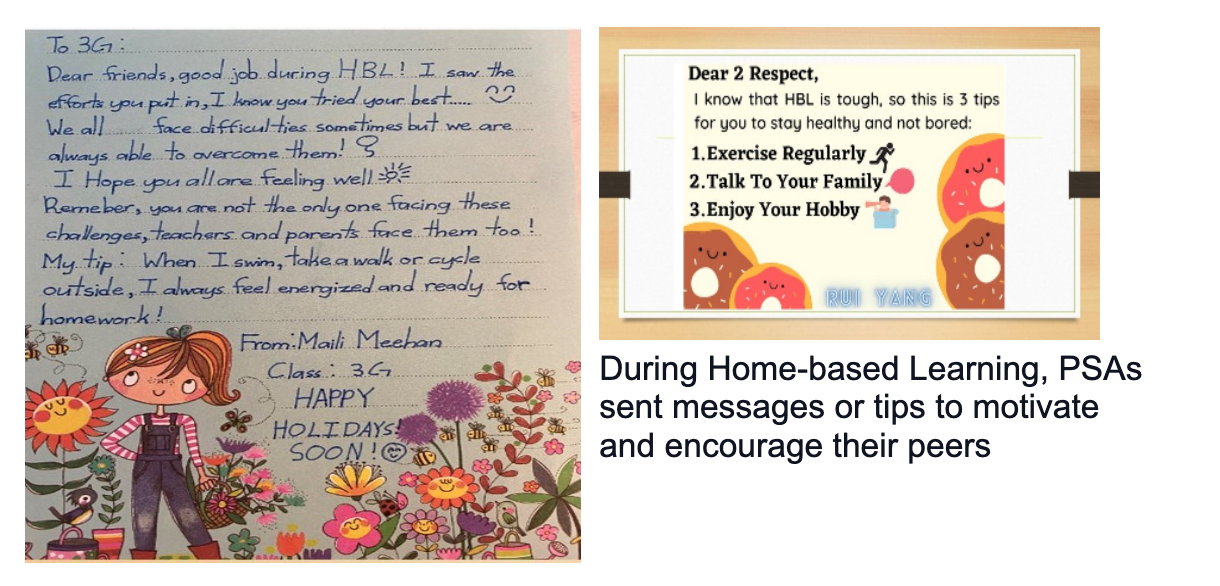 To 3G:
Dear friends, good job during HBL! I saw the
efforts you put in, I know you tried your best.....
We all face difficulties sometimes but we are
always able to overcome them!
I Hope you all are feeling well
Remeber, you are not the only one facing these
challenges, teachers and parents face them too!
My tip: When I swim, take a walk or cycle
outside, I always feel energized and ready for
homework!
From: Maili Meehan
Class: 3G
HAPPY
HOLIDAYS!
SOON!
Dear 2 Respect,
I know that HBL is tough, so this is 3 tips
for you to stay healthy and not bored:
1.Exercise Regularly
2.Talk To Your Family
3.Enjoy Your Hobby
RUI YANG
During Home-based Learning, PSAs
sent messages or tips to motivate
and encourage their peers